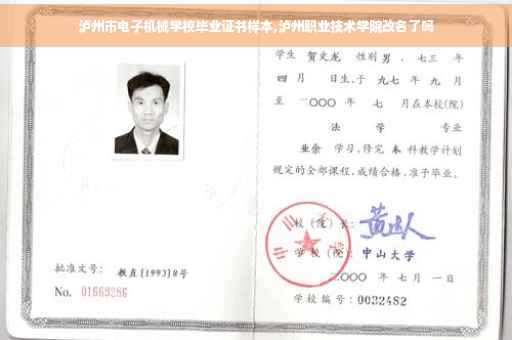 泸州市电子机械学校毕业证书样本,泸州职业技术学院改名了吗
学生 贺文龙 性别 男 、七三 年
四 月 日生,于 九七 年 九 月
至 二〇〇〇 年 七 月在本校(院)
法 学 专业
业余 学习,修完 本 科教学计划
规定的全部课程,成绩合格,准予毕业。
校(院)长:
学校(院):中山大学
二〇〇〇 年 七 月 一 日
学校编号:0032482
批准文号: 教直[1993]8号
No. 01669286